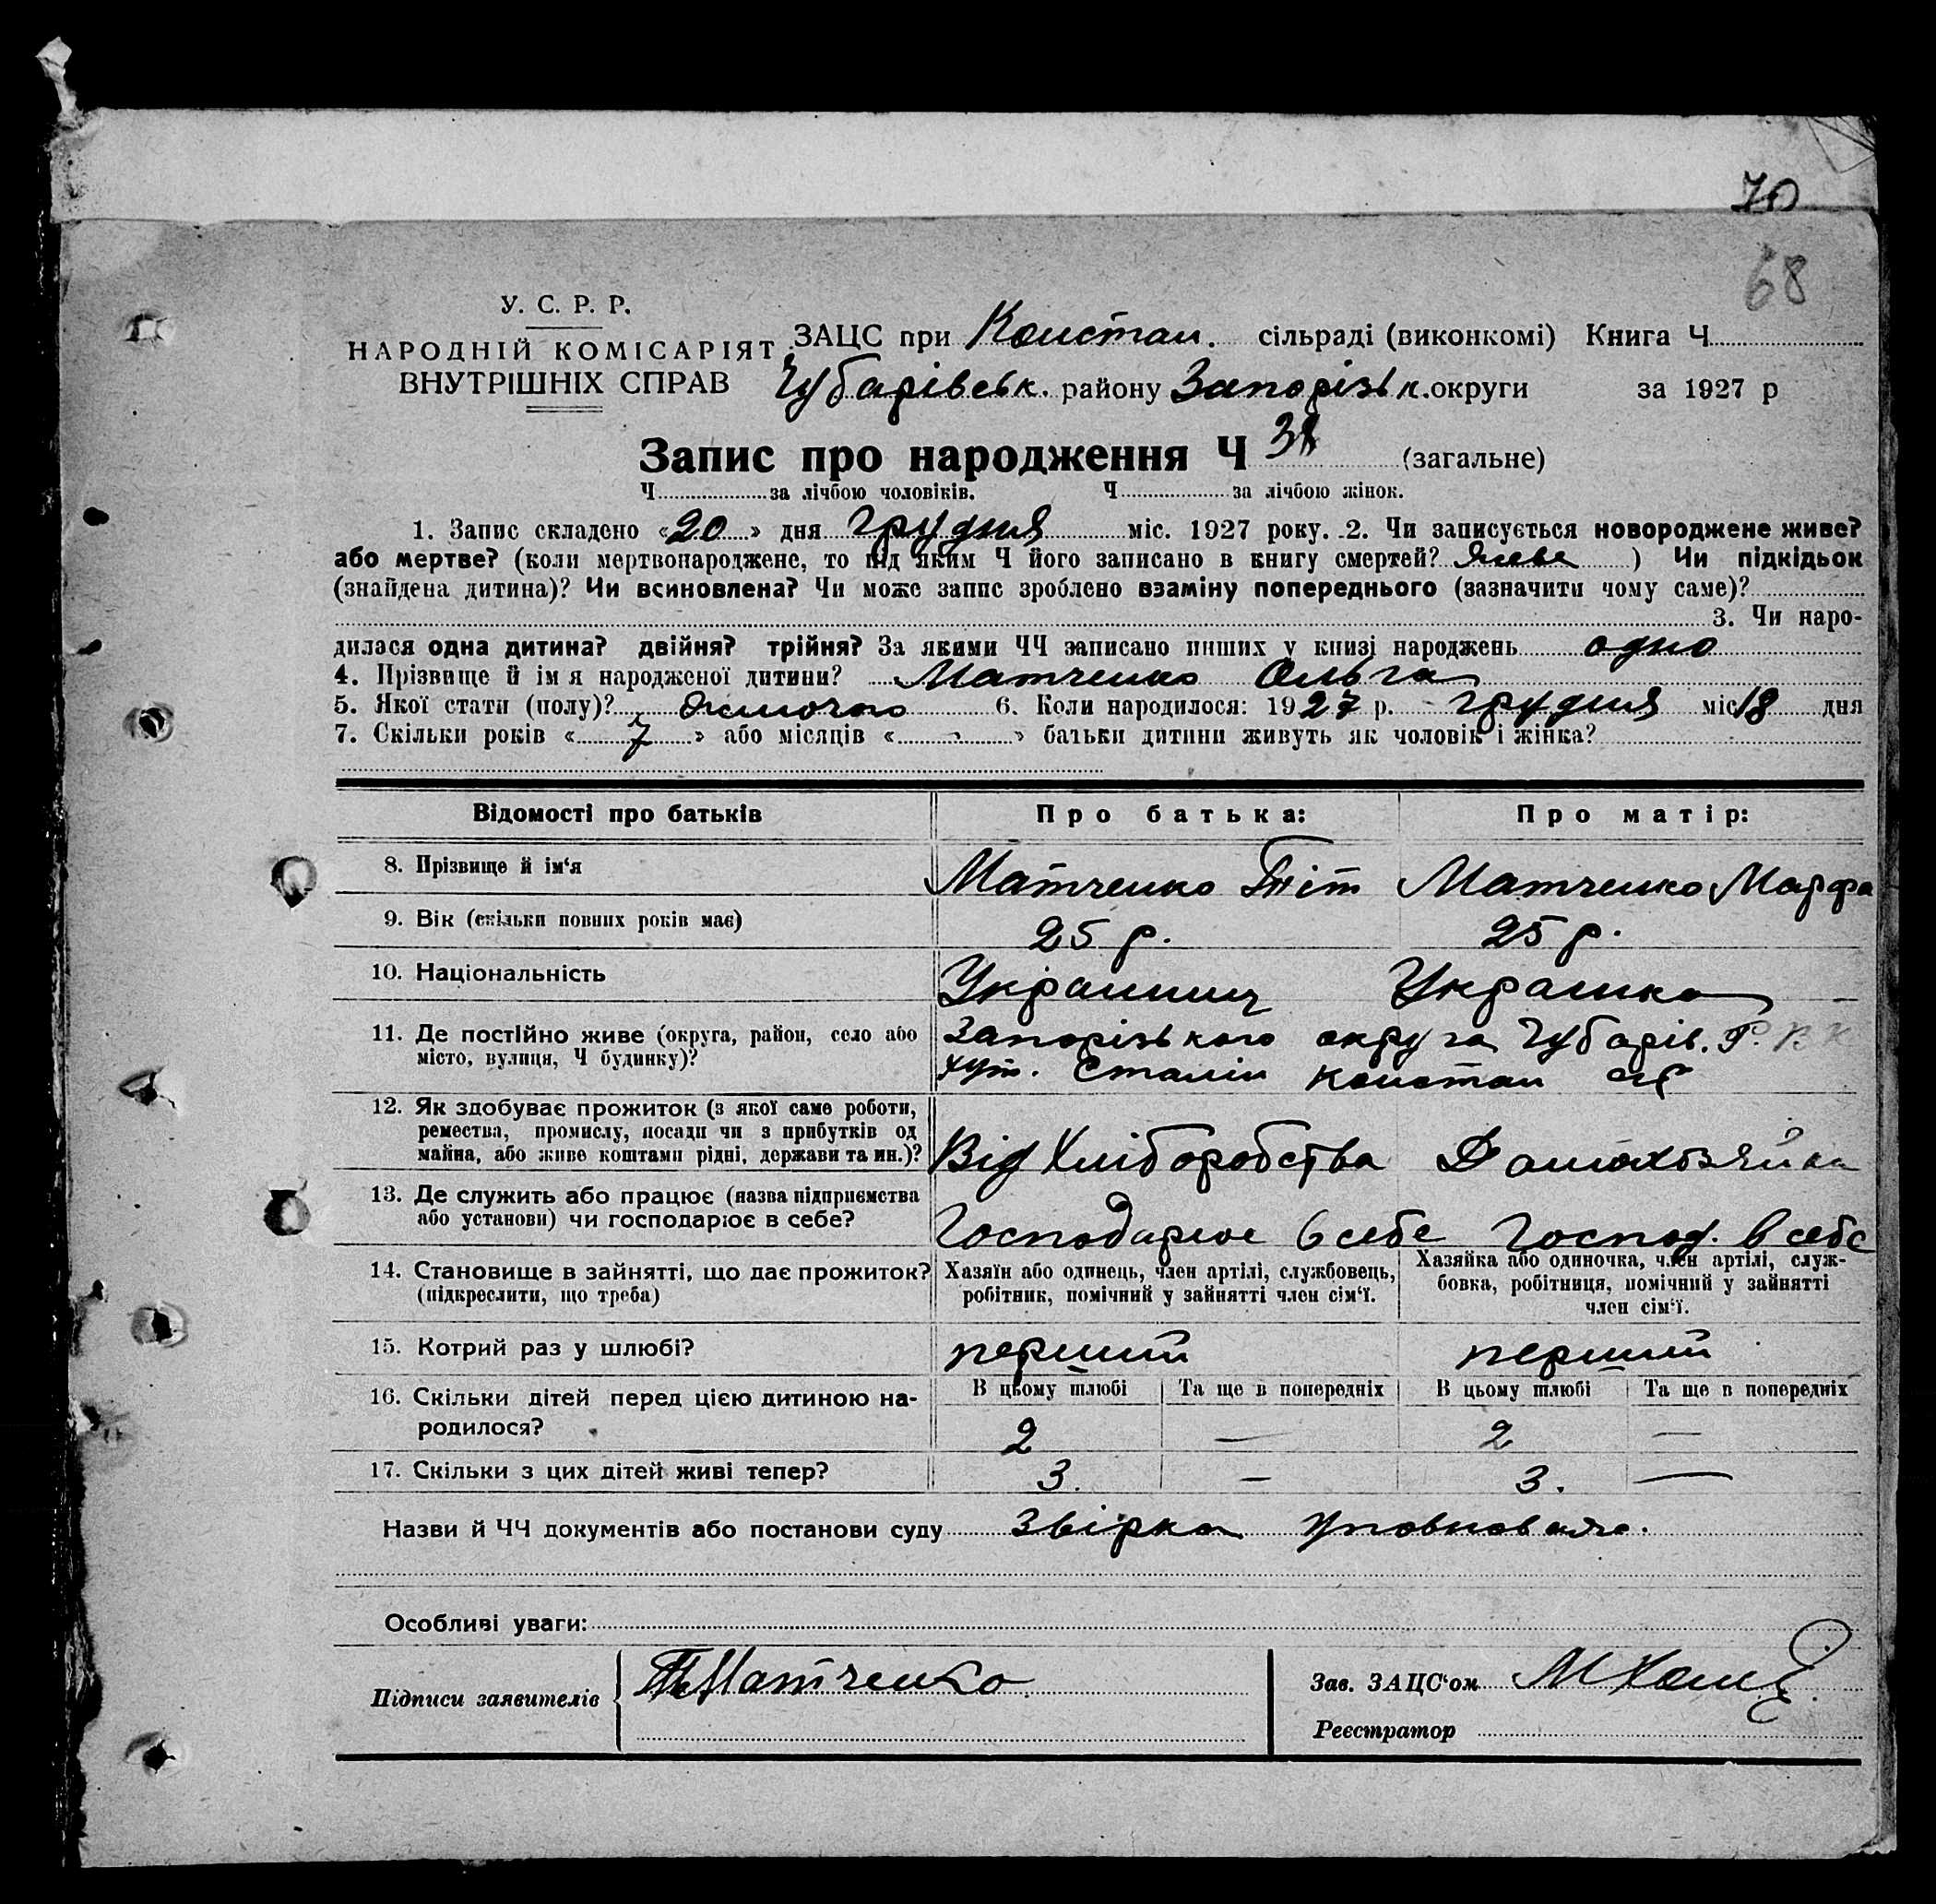 70
68
У. С. Р. Р.
НАРОДНІЙ КОМІСАРІЯТ
ВНУТРІШНІХ СПРАВ
ЗАЦС при Констан. сільраді (виконкомі) Книга Ч
Чубарівськ. району Запорізьк. округи за 1927 р
Запис про народження Ч (загальне)
Ч за лічбою чоловіків. Ч за лічбою жінок.
1. Запис складено «20» дня грудня міс. 1927 року. 2. Чи записується новороджене живе?
або мертве? (коли мертвонароджене, то під яким Ч його записано в книгу смертей? живе ) Чи підкідьок
(знайдена дитина)? Чи всиновлена? Чи може запис зроблено взаміну попереднього (зазначити чому саме)?
3. Чи наро-
дилася одна дитина? двійня? трійня? За якими ЧЧ записано инших у книзі народжень одно
4. Прізвище й ім я народженої дитини? Матченко Ольга
5. Якої стати (полу)? жіночого 6. Коли народилося: 1927 р. грудня міс 18 дня
7. Скільки років « 7 » або місяців « - » батьки дитини живуть як чоловік і жінка?
Відомості про батьків Про батька: Про матір:
8. Прізвище й ім'я Матченко Тіт Матченко Марфа
9. Вік (скільки повних років має) 25 р. 25 р.
10. Національність Українець Українка
11. Де постійно живе (округа, район, село або Запорізького округа Чубарів. Р. В К
місто, вулиця, Ч будинку)? хут. Сталін Констан с/с
12. Як здобуває прожиток (з якої саме роботи,
ремества, промислу, посади чи з прибутків од
майна, або живе коштами рідні, держави та ин.)? Від Хліборобства Домохозяйка
13. Де служить або працює (назва підприємства
або установи) чи господарює в себе? Господарює в себе Господ. в себе
14. Становище в зайнятті, що дає прожиток? Хазяїн або одинець, член артілі, службовець, Хазяйка або одиночка, член артілі, служ-
(підкреслити, що треба) робітник, помічний у зайнятті член сім'ї. бовка, робітниця, помічний у зайнятті
член сім'ї.
15. Котрий раз у шлюбі? перший перший
16. Скільки дітей перед цією дитиною на- В цьому шлюбі Та ще в попередніх В цьому шлюбі Та ще в попередніх
родилося? 2 — 2 —
17. Скільки з цих дітей живі тепер? 3. — 3. —
Назви й ЧЧ документів або постанови суду Звірка
Особливі уваги:
Підписи заявителів Т Матченко Зав. ЗАЦС'ом
Реєстратор